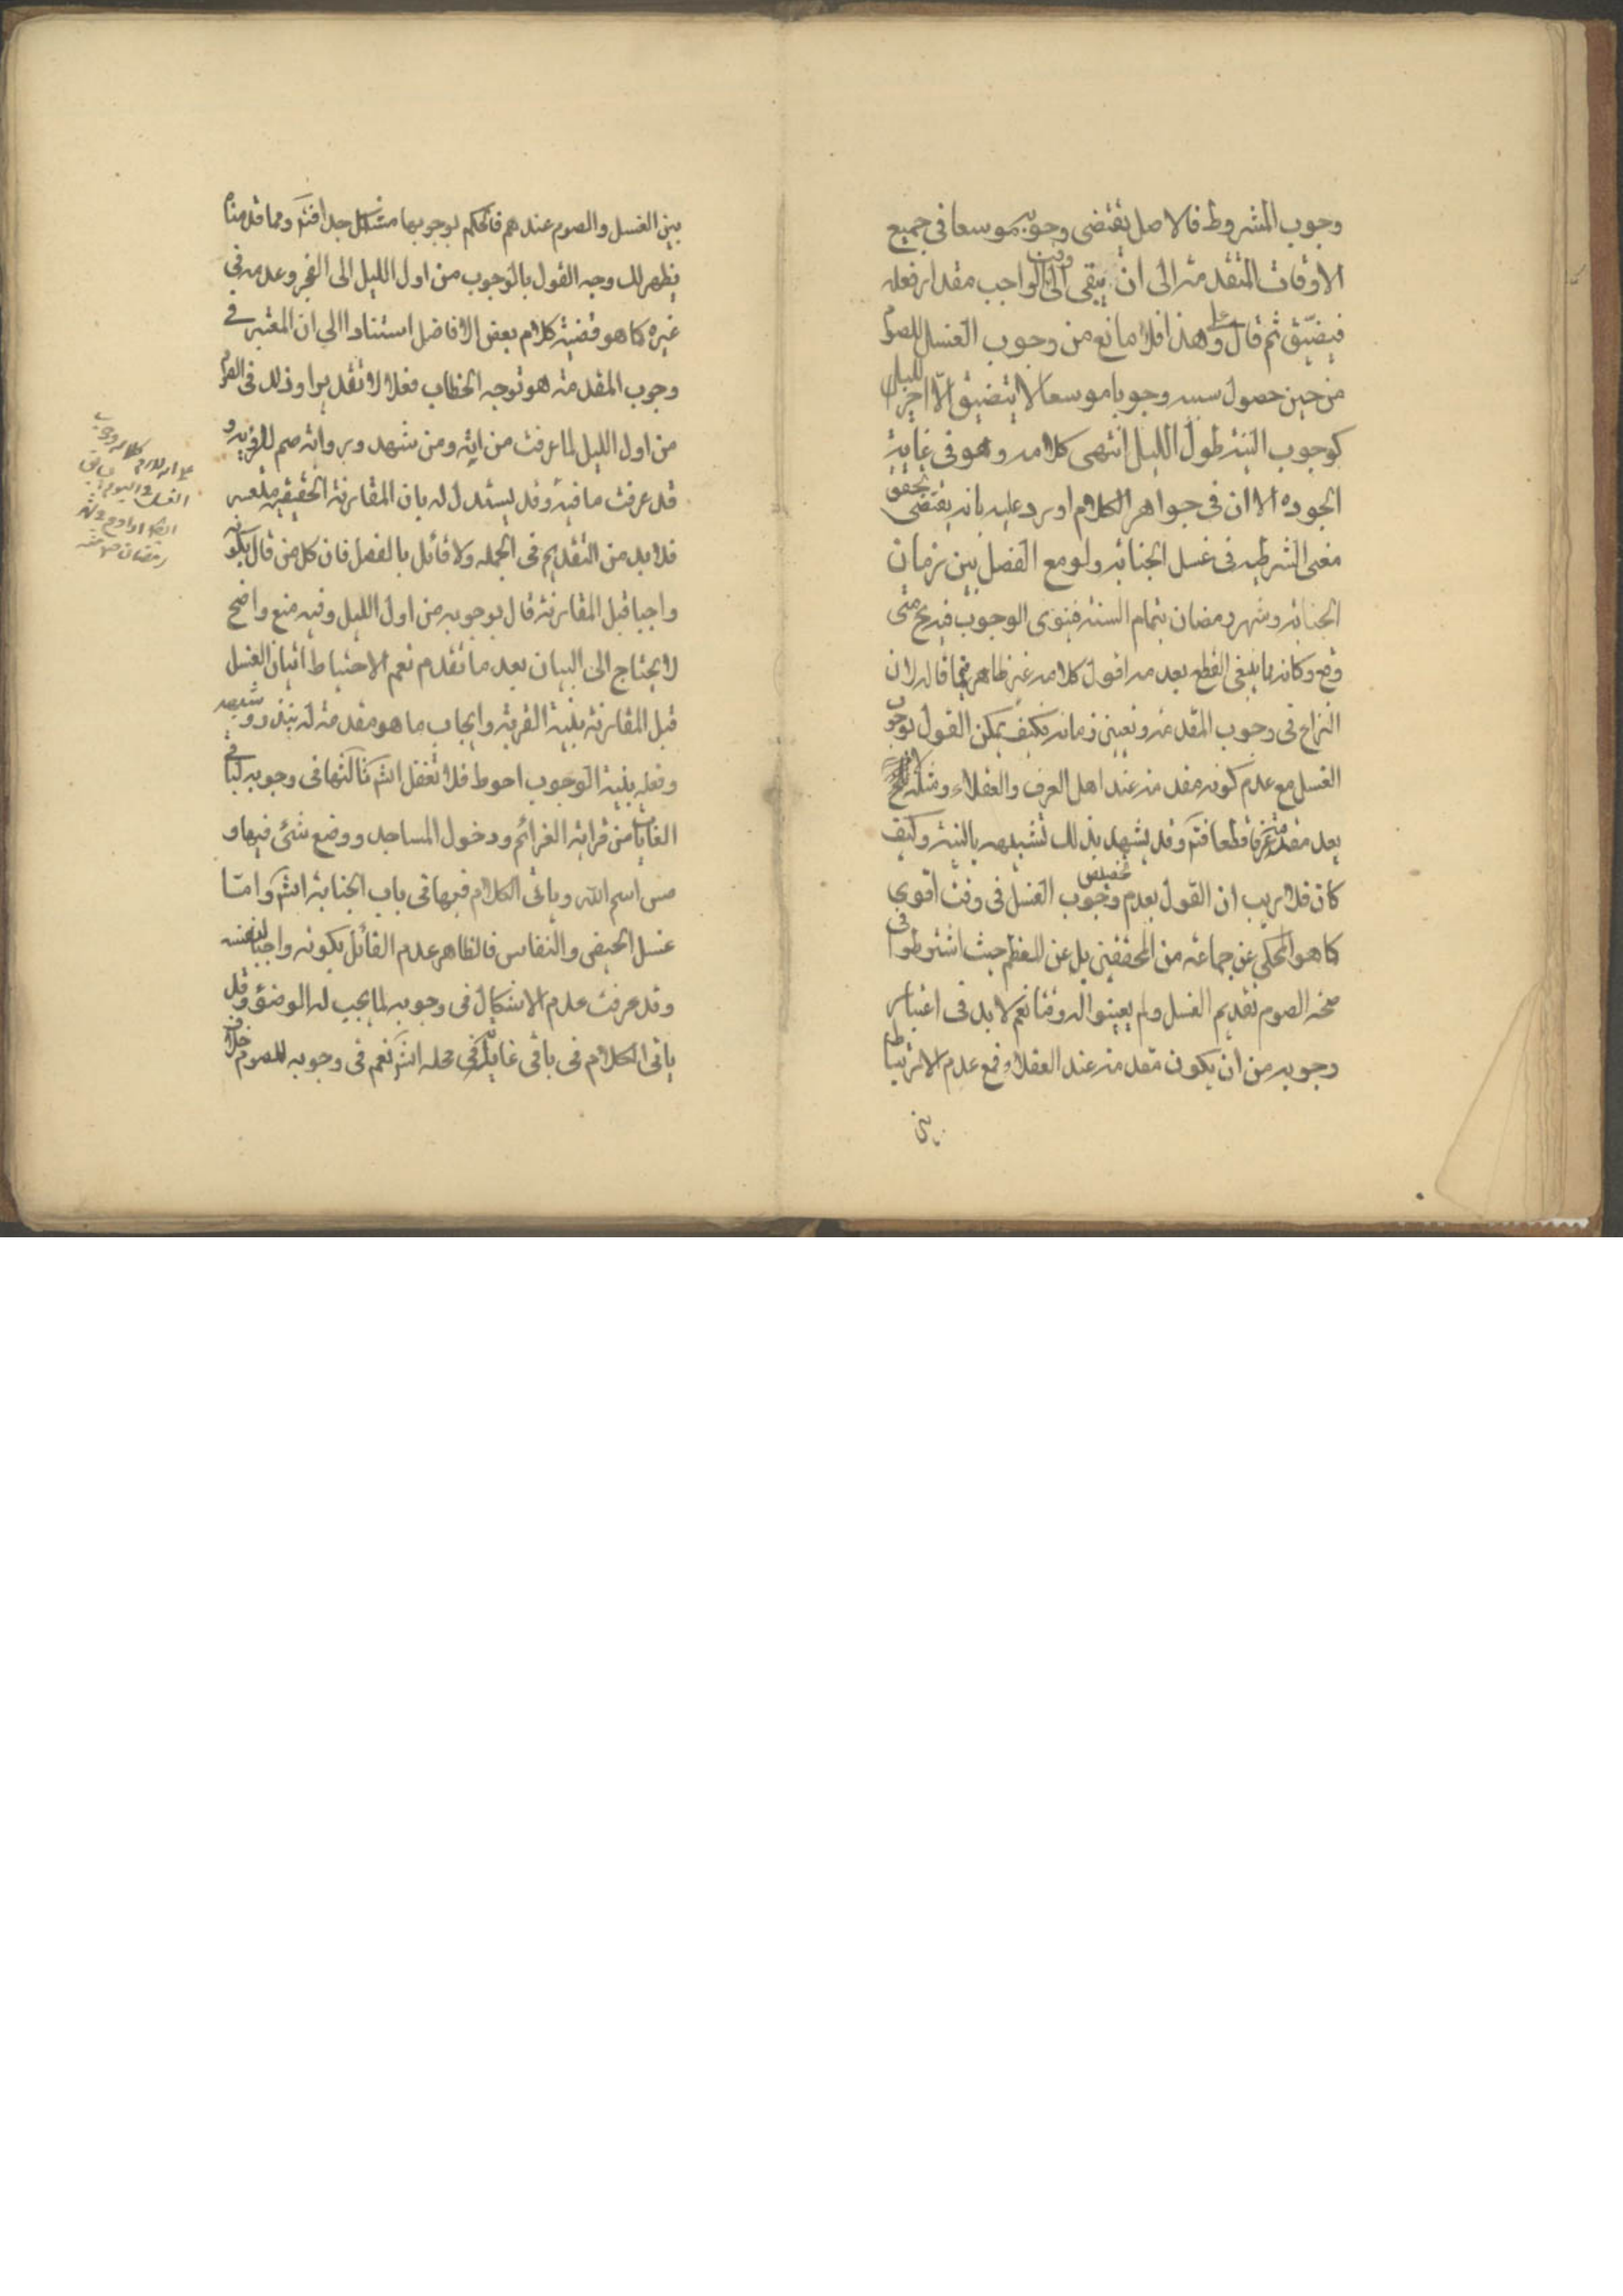 وجوب المشروط فالاصل يقتضى وجوبه موسعا فى جميع
الاوقات المتقدمة الى ان يبقى الى وقت الواجب مقدار فعله
فيضيّق ثم قال وعلى هذا فلا مانع من وجوب الغسل للصوم
من حين حصول سببه وجوبا موسعا لا يتضيق الّا اخر الليل
كوجوب النية طول الليل انتهى كلامه وهو فى غاية
الجوده الا ان فى جواهر الكلام اورد عليه بانه يقتضى تحقق
معنى الشرطيه فى غسل الجنابه ولو مع الفصل بين زمان
الجنابه وشهر رمضان بتمام السنه فينوى الوجوب فيه ح متى
وقع وكانه مما ينبغى القطع بعدمه اقول كلامه غير ظاهر فيما قاله لان
النزاع فى وجوب المقدمه وتعيين زمانه فكيف يمكن القول بوجوب
الغسل مع عدم كونه مقدمه عند اهل العرف والعقلاء ومثله
يعد مقدمة عرفا قطعا فتم وقد يشهد بذلك تشبيهه بالنية وكيف
كان فلا ريب ان القول بعدم تخصيص وجوب الغسل فى وقت اقوى
كما هو المحكى عن جماعه من المحققين بل عن المعظم حيث اشترطوا فى
صحه الصوم تقديم الغسل ولم يعينوا له وقتا نعم لا بد فى اعتبار
وجوبه من ان يكون مقدمه عند العقلا ومع عدم الارتباط
بين
بين الغسل والصوم عندهم فالحكم بوجوبها مشكل جدا فتم ومما قدمنا
يظهر لك وجه القول بالوجوب من اول الليل الى الفجر وعدمه فى
غيره كما هو قضية كلام بعض الافاضل استنادا الى ان المعتبر فى
وجوب المقدمة هو توجه الخطاب فعلا لا تقديرا وذلك فى الصوم
من اول الليل لما عرفت من اية ومن شهد ورواية صم للرؤية و
قد عرفت ما فيه وقد يستدل له بان المقارنة الحقيقيه متعسره
فلا بد من التقديم فى الجمله ولا قائل بالفصل فان كل من قال بكونه
واجبا قبل المقارنة قال بوجوبه من اول الليل وفيه منع واضح
لا يحتاج الى البيان بعد ما تقدم نعم الاحتياط اتيان الغسل
قبل المقارنة بنية القربة وايجاب ما هو مقدمة له بنذر وشبهه
وفعله بنية الوجوب احوط فلا تغفل انشء ثالثها فى وجوبه لباقى
الغايات من قراءة العزائم ودخول المساجد ووضع شئ فيها و
مس اسم الله وياتى الكلام فيها فى باب الجنابة انشء وامّا
غسل الحيض والنفاس فالظاهر عدم القائل بكونه واجبا لنفسه
وقد عرفت عدم الاشكال فى وجوبه لما يجب له الوضوء وقد
ياتى الكلام فى باقى غاياته فى محله انشء نعم فى وجوبه للصوم خلاف